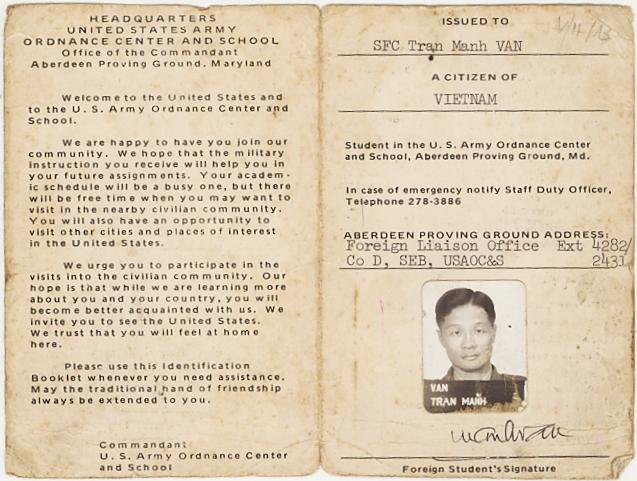 HEADQUARTERS
UNITED STATES ARMY
ORDNANCE CENTER AND SCHOOL
Office of the Commandant
Aberdeen Proving Ground, Maryland
Welcome to the United States and
to the U. S. Army Ordnance Center and
School.
We are happy to have you join our
community. We hope that the military
instruction you receive will help you in
your future assignments. Your academ-
ic schedule will be a busy one, but there
will be free time when you may want to
visit in the nearby civilian community.
You will also have an opportunity to
visit other cities and places of interest
in the United States.
We urge you to participate in the
visits into the civilian community. Our
hope is that while we are learning more
about you and your country, you will
become better acquainted with us. We
invite you to see the United States.
We trust that you will feel at home
here.
Please use this Identification
Booklet whenever you need assistance.
May the traditional hand of friendship
always be extended to you.
Commandant
U. S. Army Ordnance Center
and School
ISSUED TO
SFC Tran Manh VAN
A CITIZEN OF
VIETNAM
Student in the U. S. Army Ordnance Center
and School, Aberdeen Proving Ground, Md.
In case of emergency notify Staff Duty Officer,
Telephone 278-3886
ABERDEEN PROVING GROUND ADDRESS:
Foreign Liaison Office Ext 4282/
Co D, SEB, USAOC&S 2431
VAN
TRAN MANH
Foreign Student's Signature